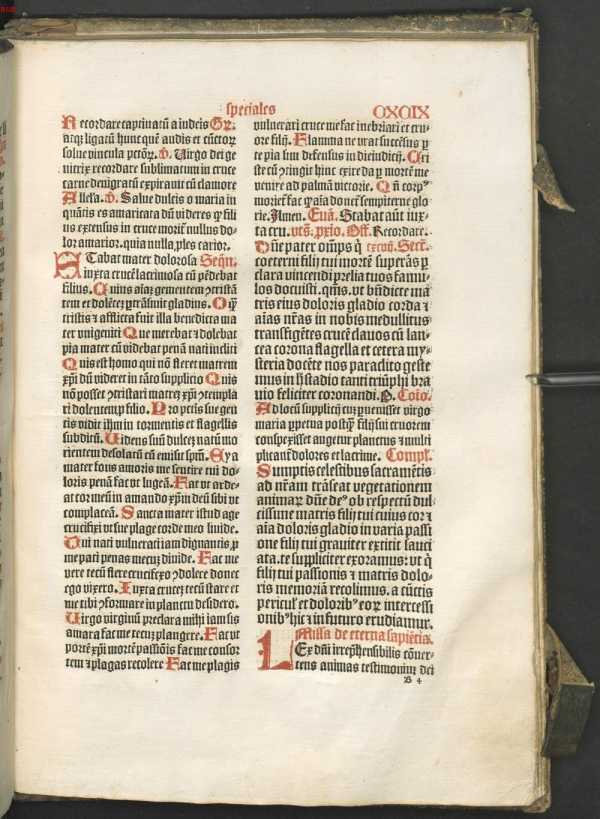 speciales
CXCIX
Recordare captiuatū a iudeis Gr̄.
atqȝ ligatū hunc quē audis et cūctoꝝ
solue vincula pctōꝝ. v̄. Uirgo dei ge
nitrix recordare sublimatum in cruce
carne denigratū expirauit cū clamore
Alleľa. v̄. Salue dulcis o maria in
quātis es amaricata dū videres ꝙ fili
us extensus in cruce moriť nullus do
lor amarior. quia nulla ꝓles carior.
STabat mater dolorosa Seqn̄.
iuxta crucē lacrimosa cū pēdebat
filius. Cuius aīaȝ gementem ↄtristā
tem et dolēteȝ ꝑtrāsiuit gladius. O ꝙ̄
tristis ⁊ afflicta fuit illa benedicta ma
ter vnigeniti Que merebat ⁊ dolebat
pia mater cū videbat penā nati incliti
Quis est homo qui nō fleret matrem
xp̄i dū videret in tāto supplicio Quis
nō posset ↄtristari matreȝ xp̄i ↄtempla
ri dolentem ↄ filio. Pro pctīs sue gen
tis vidit ih̄m in tormentis et flagellis
subditū. Uidens suū dulceȝ natū mo
rientem desolatū cū emisit spm̄. Eya
mater fons amoris me sentire vim do-
loris penā fac vt lugeā. Fac vt arde-
at cor meū in amando xp̄m deū sibi vt
complaceā. Sancta mater istud age
crucifixi vt sue plage corde meo liuide.
Tui nati vulnerati iam dignantis ꝓ
me pati penas mecuȝ diuide. Fac me
vere tecū flere crucifixo ↄdolere donec
ego vixero. Iuxta cruceȝ tecū stare et
me tibi ↄformare in planctu desidero.
Uirgo virginū preclara mihi iam sis
amara fac me tecuȝ plangere. Fac vt
portē xp̄i mortē passiōis fac me consor
tem ⁊ plagas recolere Fac me plagis
vulnerari cruce me fac inebriari et cru-
ore filij. Flamma ne vrar succēsus ꝑ
te pia sim defensus in die iudicij. Cri
ste cū ↄtingit hinc exire da ꝑ matrē me
venire ad palmā victorie. Qn̄ corpꝰ
morieť fac ꝙ aīa donef sempiterne glo
rie. Amen. Euā. Stabat aūt iux-
ta cru. vts̄. pxio. Off. Recordare.
Dn̄e pater oīmps ꝗ Secr̄.
coeterni filij tui mortē superās p
clara vincendi prelia tuos famu-
los docuisti. qm̄s. vt bn̄dicte ma
tris eius doloris gladio corda ⁊
aīas nr̄as in nobis medullitus
transfigētes crucē clauos cū lan-
cea corona flagella et cetera my-
steria docēte nos paraclito geste
mus in hͦ stadio tanti triūphi bra
uio feliciter coronandi. P. Cōīo.
Ad locū supplicij cuȝ ꝑuenisset virgo
maria ꝓpetua postꝙ̄ filij sui cruorem
conspexisset augetur planctus ⁊ multi
plicanť dolores et lacrime. Compl.
Sumptis celestibus sacramētis
ad nr̄am trāseat vegetationem
animaꝝ dn̄e deꝰ ob respectū dul-
cissime matris filij tui cuius cor ⁊
aīa doloris gladio in varia passi
one filij tui grauiter exticit sauci
ata. te suppliciter exoramus: vt ꝗ
filij tui passionis ⁊ matris dolo-
ris memoriā recolimus. a cūctis
pericul' et doloribꝰ eoꝝ intercessi
onibꝰ hic ⁊ in futuro erudiamur.
Missa de eterna sapiētia.
LEx dn̄i irrep̄hensibilis cōuer-
tens animas testimonium dei
B 4